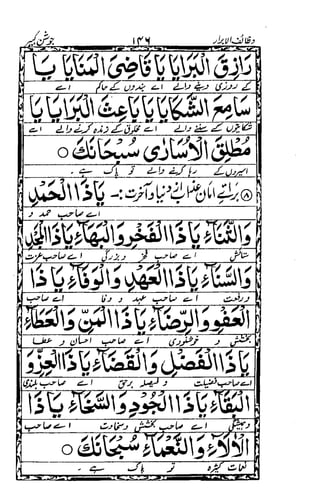 وظائف الابرار ۱۴۶ جوشن کبیر
رَازِقَ الْبَرَايَا يَا قَاضِيَ الْمَنَايَا يَا
کے روزی دینے والے اے بندوں کے حاکم اے
سَامِعَ الشَّكَايَا يَا بَاعِثَ الْبَرَايَا يَا
شکایتوں کے سننے والے اے مخلوق کے زندہ کرنے والے اے
مُطْلِقَ الْأُسَارَى سُبْحَانَكَ ○
اسیروں کے رہا کرنے والے تو پاک ہے ۔
⑧ برائے امان عذاب دنیا و آخرت :- يَا ذَا الْحَمْدِ
اے صاحب حمد و
وَالثَّنَاءِ يَا ذَا الْفَخْرِ وَالْبَهَاءِ يَا ذَا الْمَجْدِ
ستائش اے صاحب فخر و بزرگی اے صاحب عزت
وَالسَّنَاءِ يَا ذَا الْعَهْدِ وَالْوَفَاءِ يَا ذَا
و رفعت اے صاحب عہد و وفا اے صاحب
الْعَفْوِ وَالرِّضَاءِ يَا ذَا الْمَنِّ وَالْعَطَاءِ
بخشش و خوشنودی اے صاحب احسان و عطا
يَا ذَا الْفَضْلِ وَالْقَضَاءِ يَا ذَا الْعِزِّ وَ
اے صاحب فضیلت و فیصلہ برحق اے صاحب بلندی
الْبَقَاءِ يَا ذَا الْجُودِ وَالسَّخَاءِ يَا ذَا
و ہمیشگی اے صاحب بخشش و سخاوت اے صاحب
الْآلَاءِ وَالنَّعْمَاءِ سُبْحَانَكَ ○
کثیرہ تو پاک ہے ۔